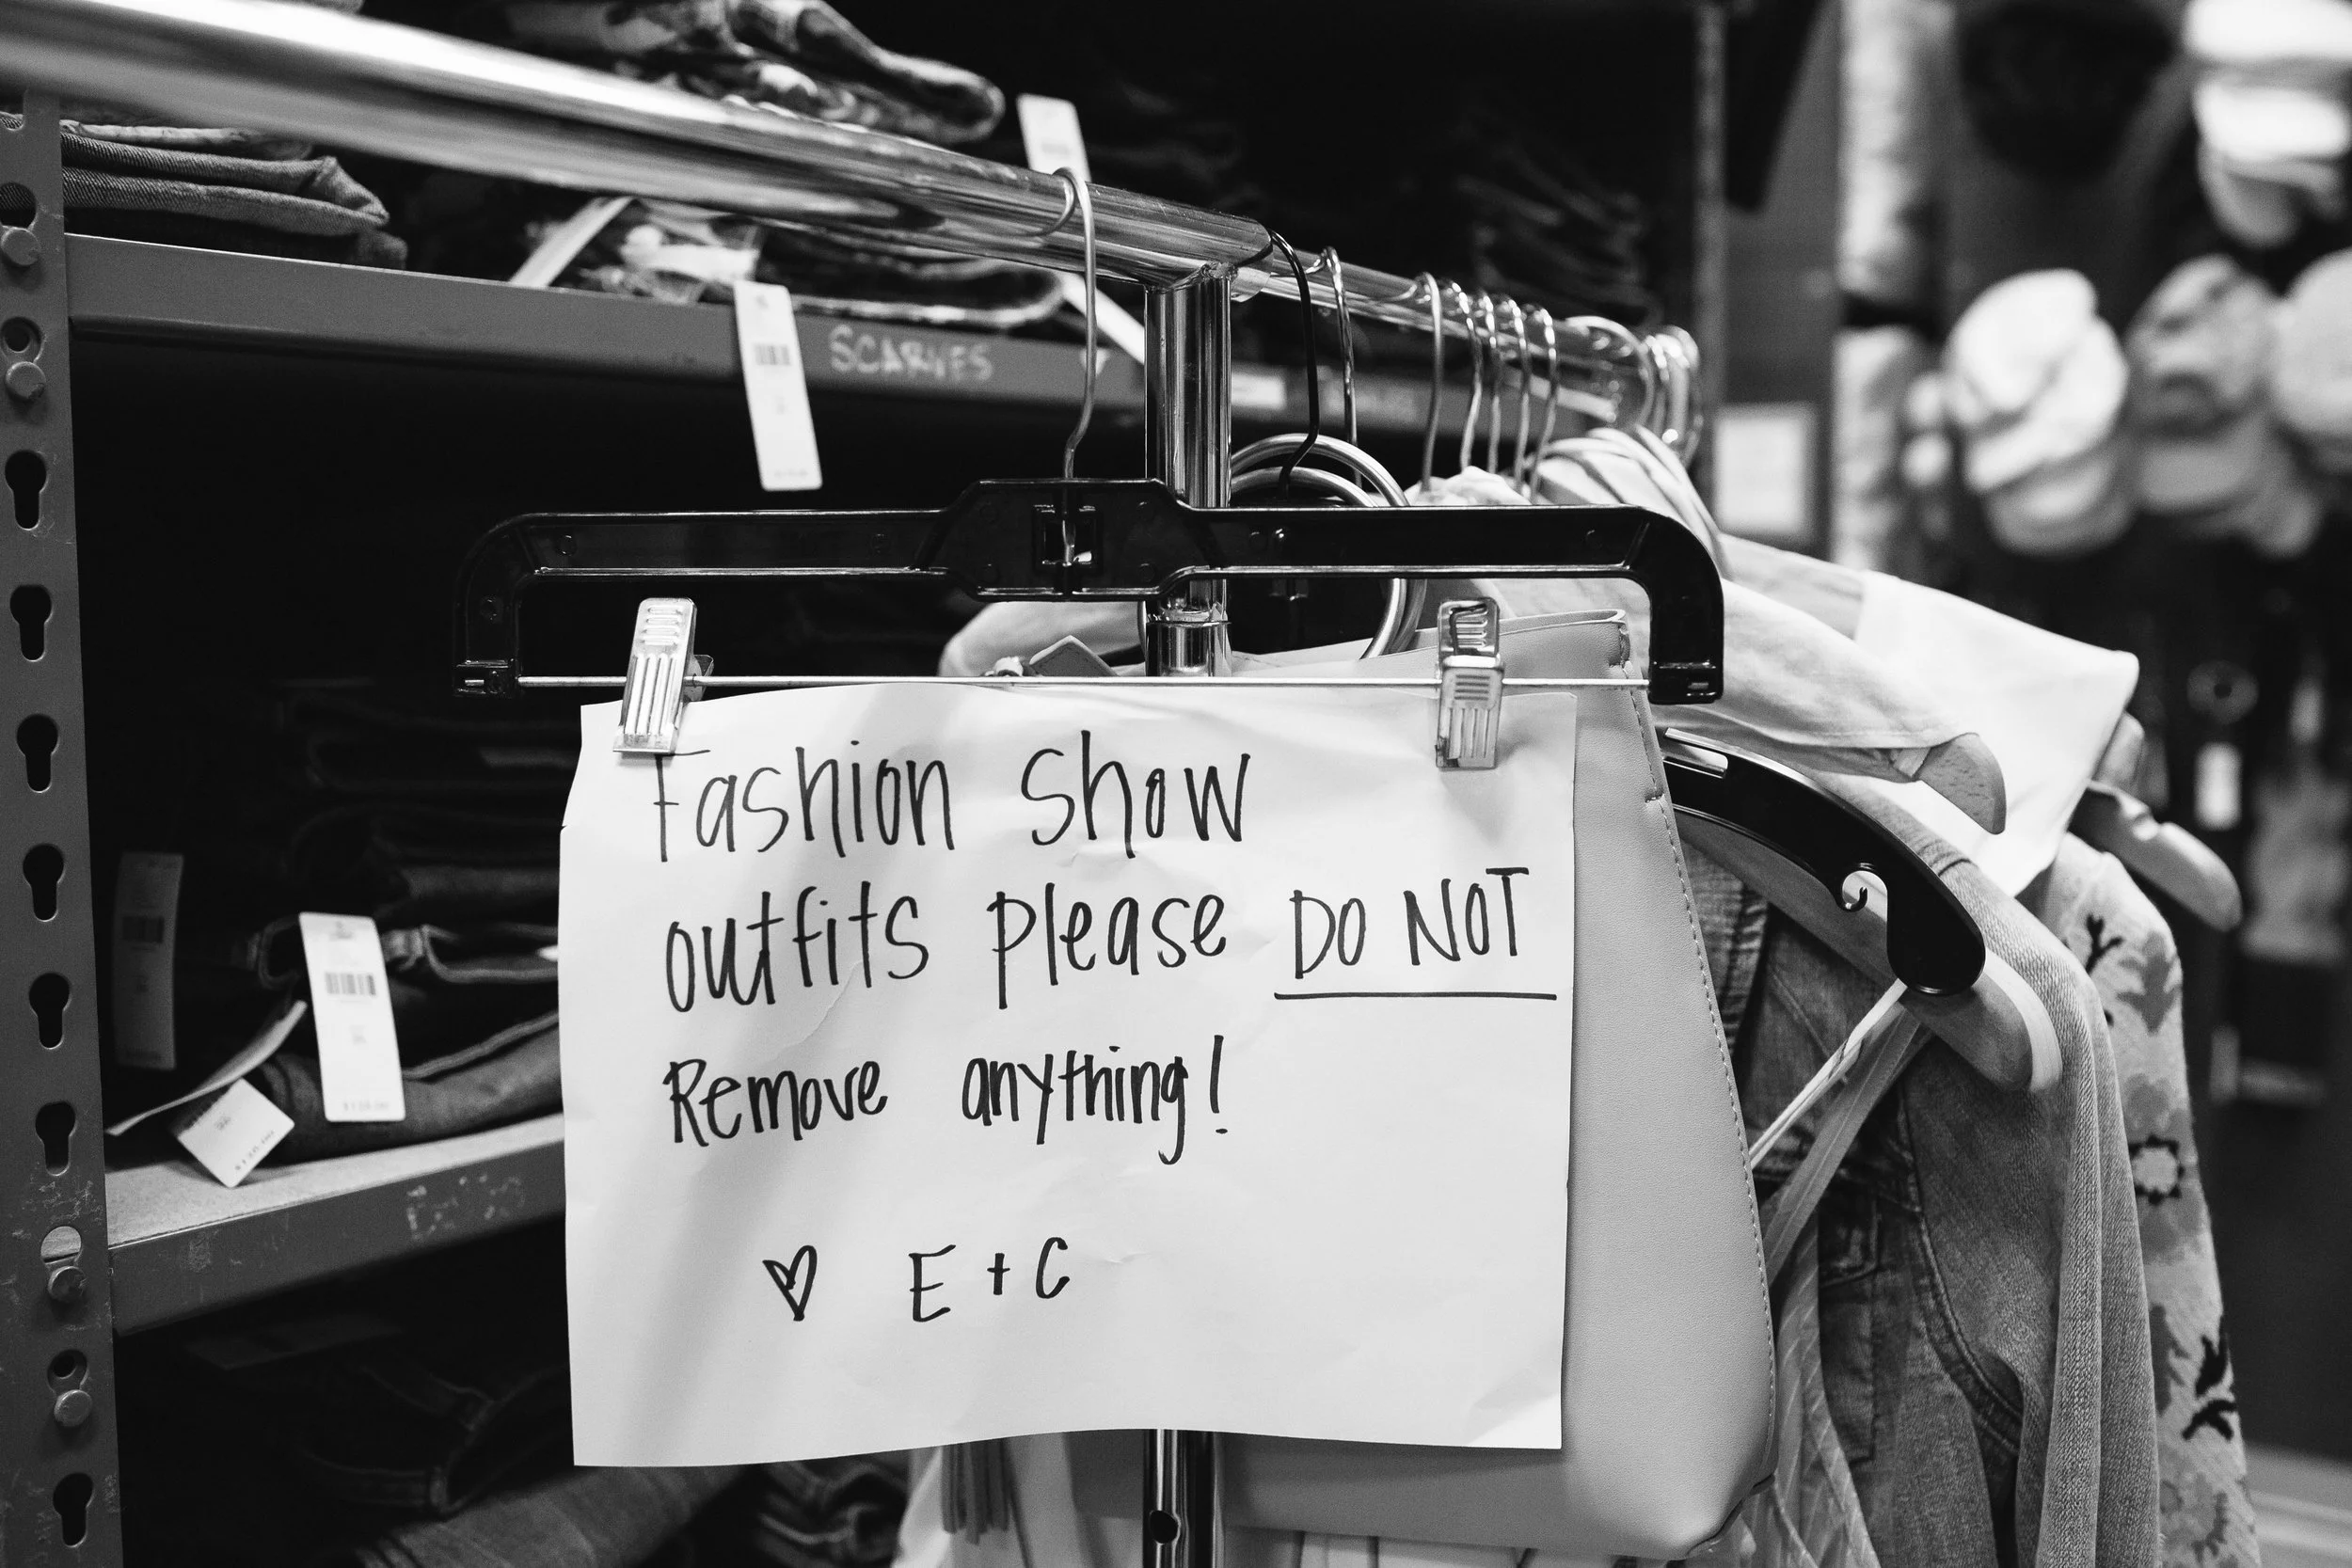 SCARVES
Fashion Show
outfits please DO NOT
Remove anything!
♡ E + C